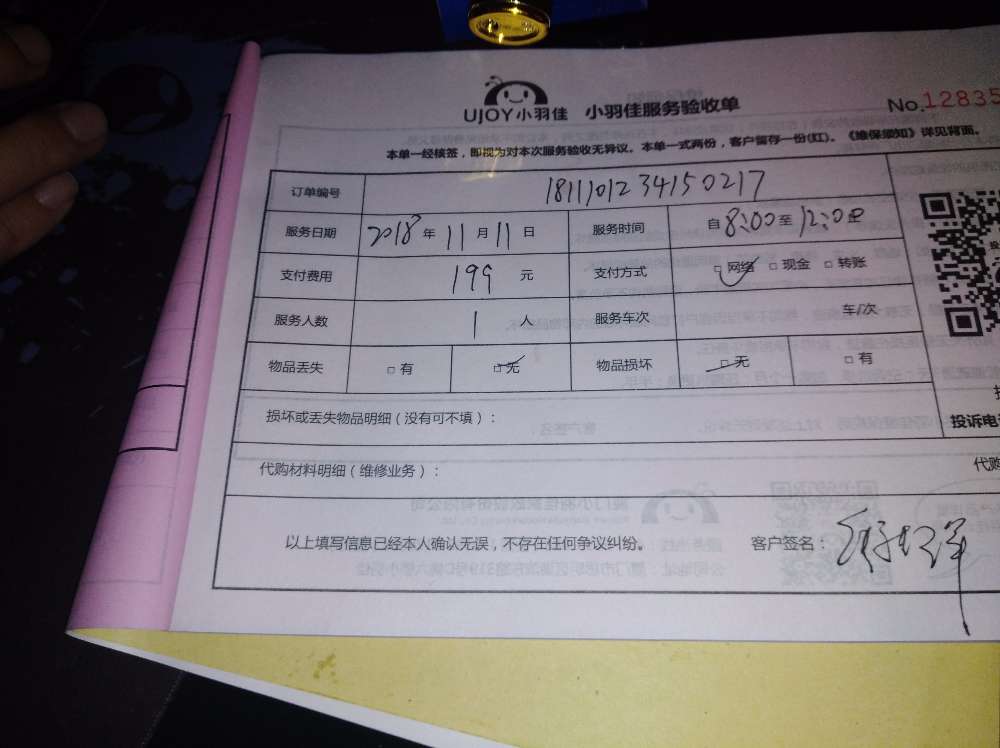 UJOY小羽佳 小羽佳服务验收单 No.12835
本单一经核签，即视为对本次服务验收无异议。本单一式两份，客户留存一份(红)。《维保须知》详见背面。
订单编号 181110123415 0217
服务日期 2018年11月11日 服务时间 自8:00至12:00
支付费用 199元 支付方式 □网络 □现金 □转账
服务人数 1人 服务车次 车/次
物品丢失 □有 □无 物品损坏 □无 □有
损坏或丢失物品明细（没有可不填）：
投诉电
代购材料明细（维修业务）： 代购
以上填写信息已经本人确认无误，不存在任何争议纠纷。 客户签名：